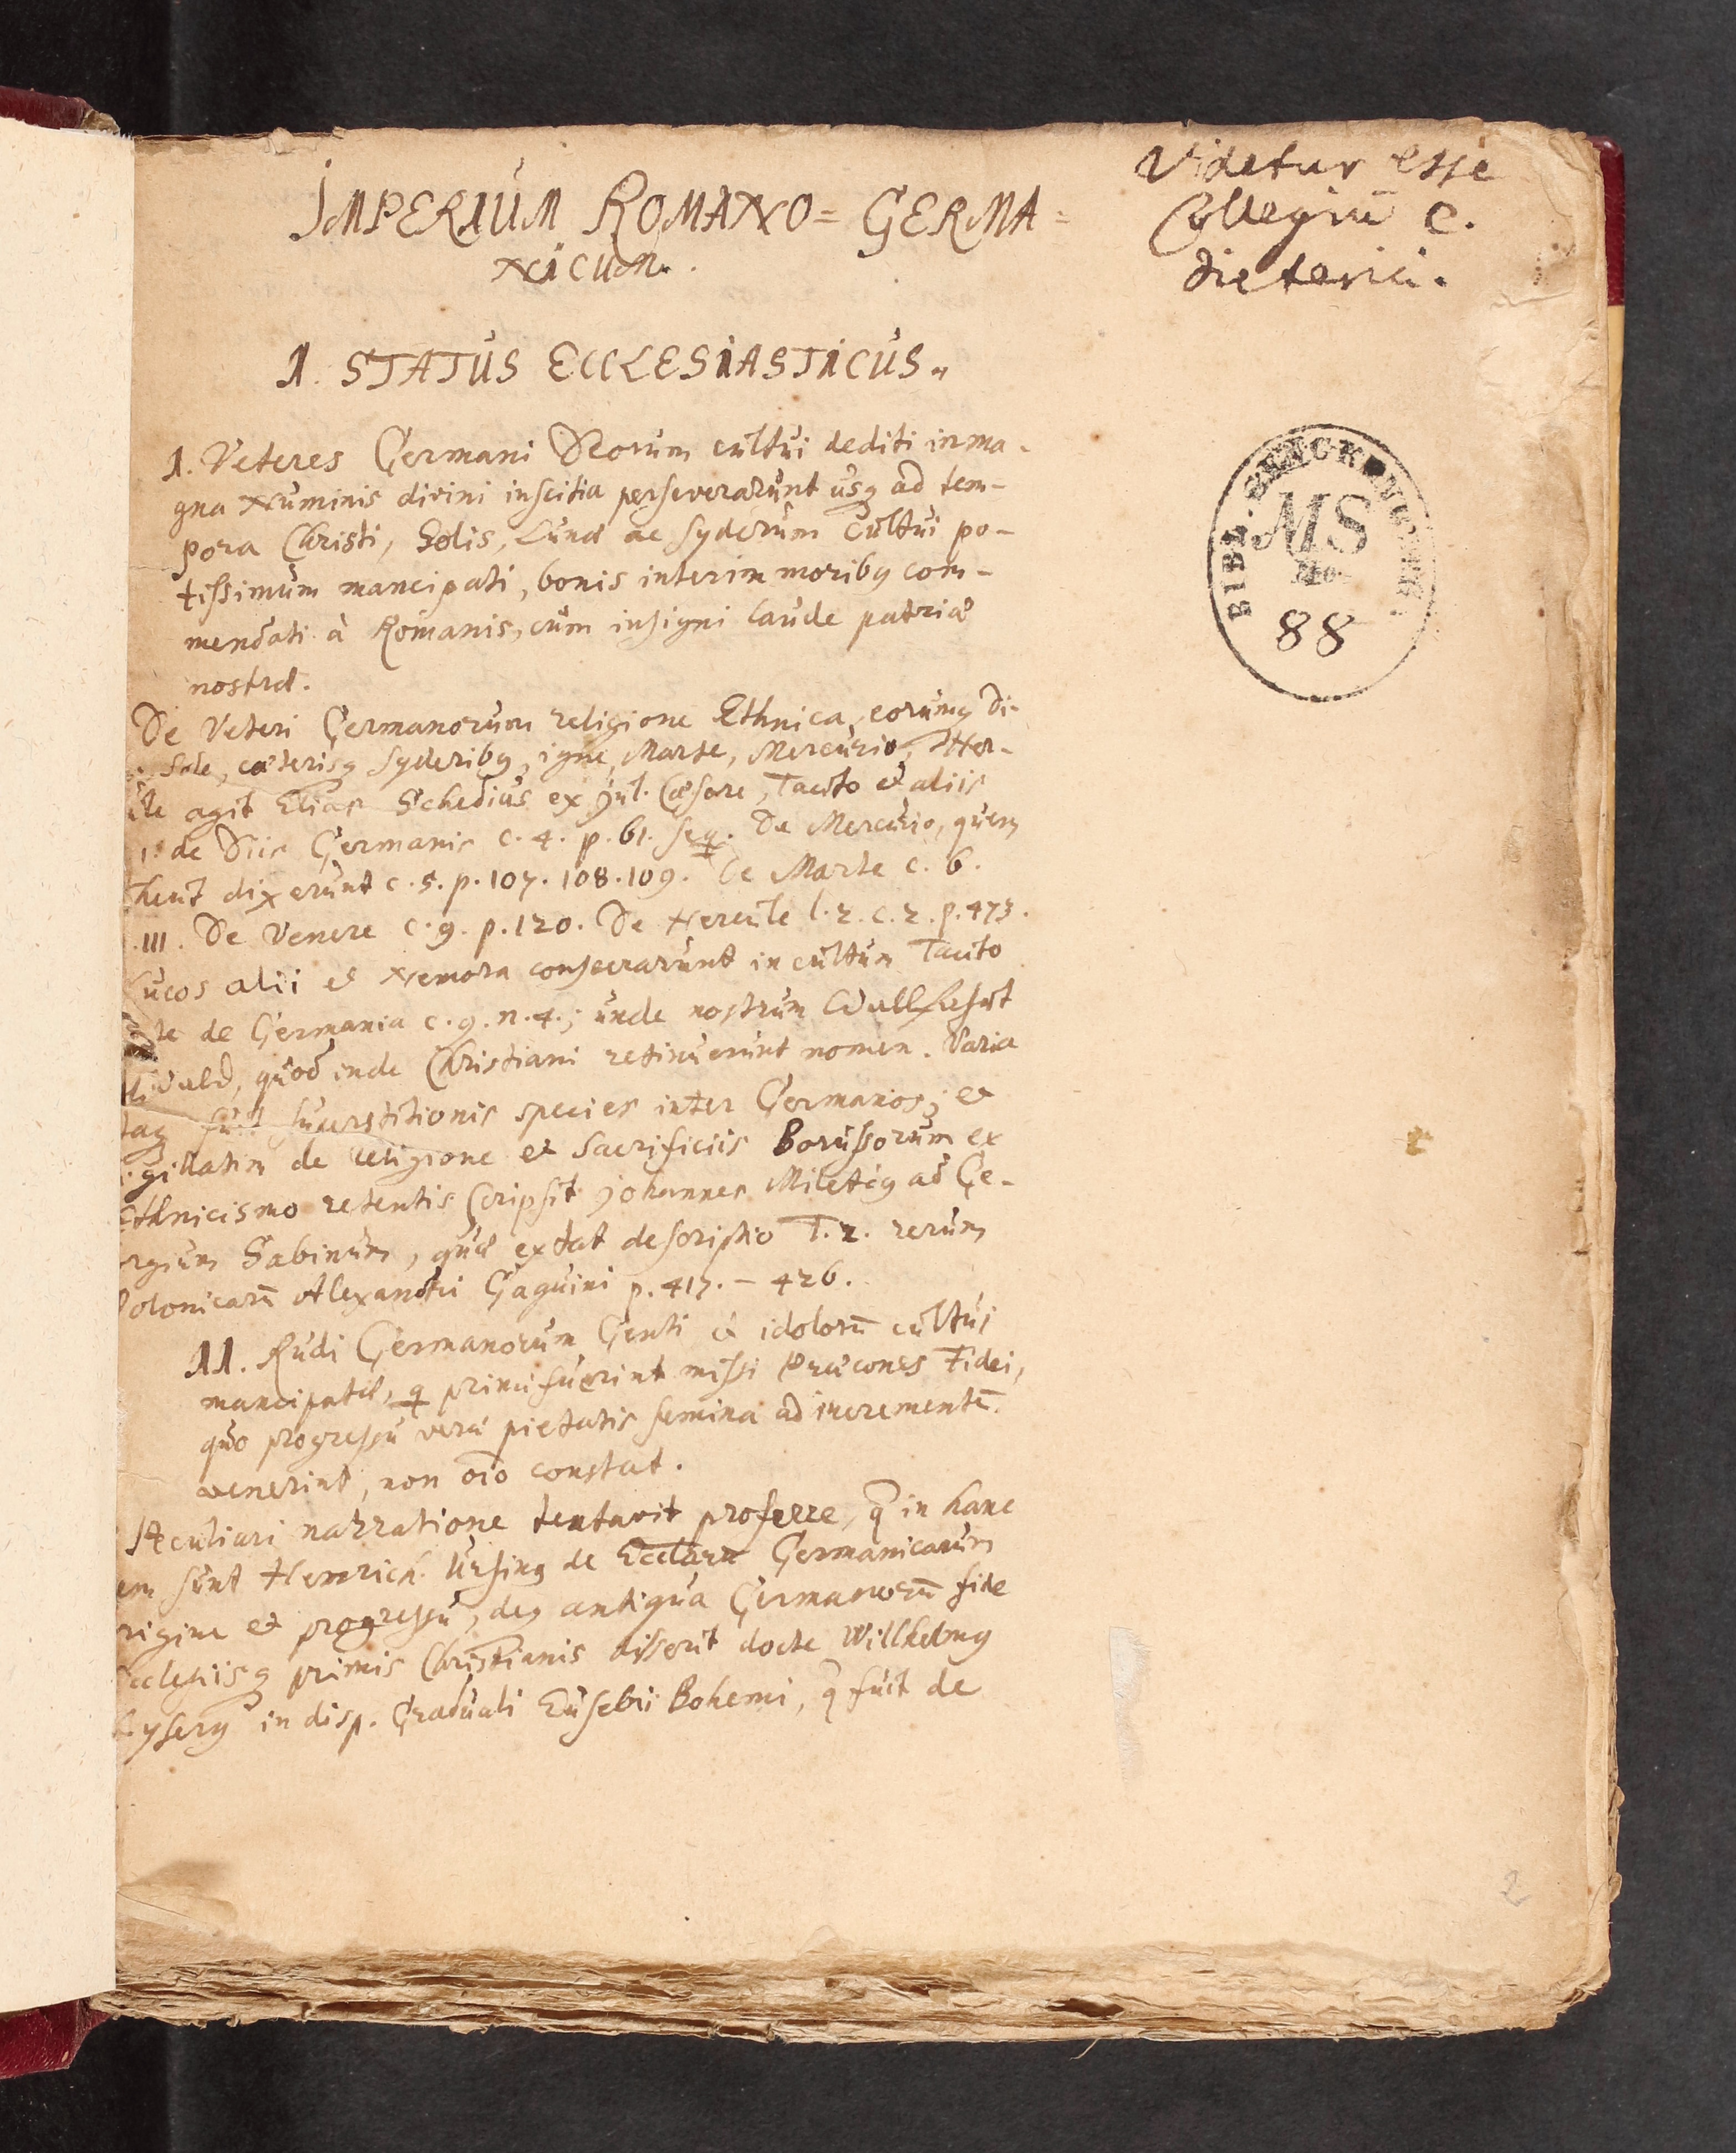 IMPERIUM ROMANO= GERMA=
NICUM.
Videtur esse
Collegiū C.
Dieterici.
1. STATUS ECCLESIASTICUS.
1. Veteres Germani Deorum cultui dediti in ma-
gna Numinis divini inscitia perseverarunt usq ad tem-
pora Christi, Solis, Lunæ ac syderum cultui po-
tissimum mancipati, bonis interim moribq com-
mendati à Romanis, cum insigni laude patriæ
nostræ.
De Veteri Germanorum religione Ethnica, eorumq Di-
Sole, cæterisq syderibq, igne, Marte, Mercurio, Her-
agit Elias Schedius ex Jul. Cæsare, Tacito et aliis
1. de Diis Germanis c. 4. p. 61. seq. De Mercurio, quem
dixerunt c. 5. p. 107. 108. 109. De Marte c. 6.
III. De Venere c. 9. p. 120. De Hercule l. 2. c. 2. p. 473.
Lucos alii et Nemora consecrarunt in cultum Tacito
de Germania c. 9. n. 4.; unde nostrum Wallfahrt
quod inde Christiani retinuerunt nomen. Varia
fuit superstitionis species inter Germanos; et
gillatim de religione et Sacrificiis Borussorum ex
Ethnicismo retentis scripsit Johannes Meletiq ad Ge-
orgium Sabinum, quæ extat descriptio T. 2. rerum
Polonicarū Alexandri Gaguini p. 417. - 426.
11. Rudi Germanorum Genti et idolorū cultui
mancipatæ, q primi fuerint missi Præcones Fidei,
quo progressu veræ pietatis semina ad incrementū
venerint, non oīo constat.
Peculiari narratione tentavit proferre, q in hanc
em sunt Henrich. Ursinq de Eccliarū Germanicarum
origine et progressu, deq antiqua Germanorū fide
Ecclesiisq primis Christianis disserit docte Wilhelmq
Lyserq in disp. Graduali Eusebii Bohemi, q fuit de
BIBL.
MS
No.
88
2